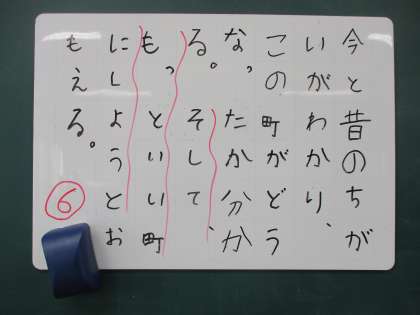 今と昔のちが
いがわかり、
この町がどう
なったか分か
る。そして、
もっといい町
にしようとお
もえる。
⑥